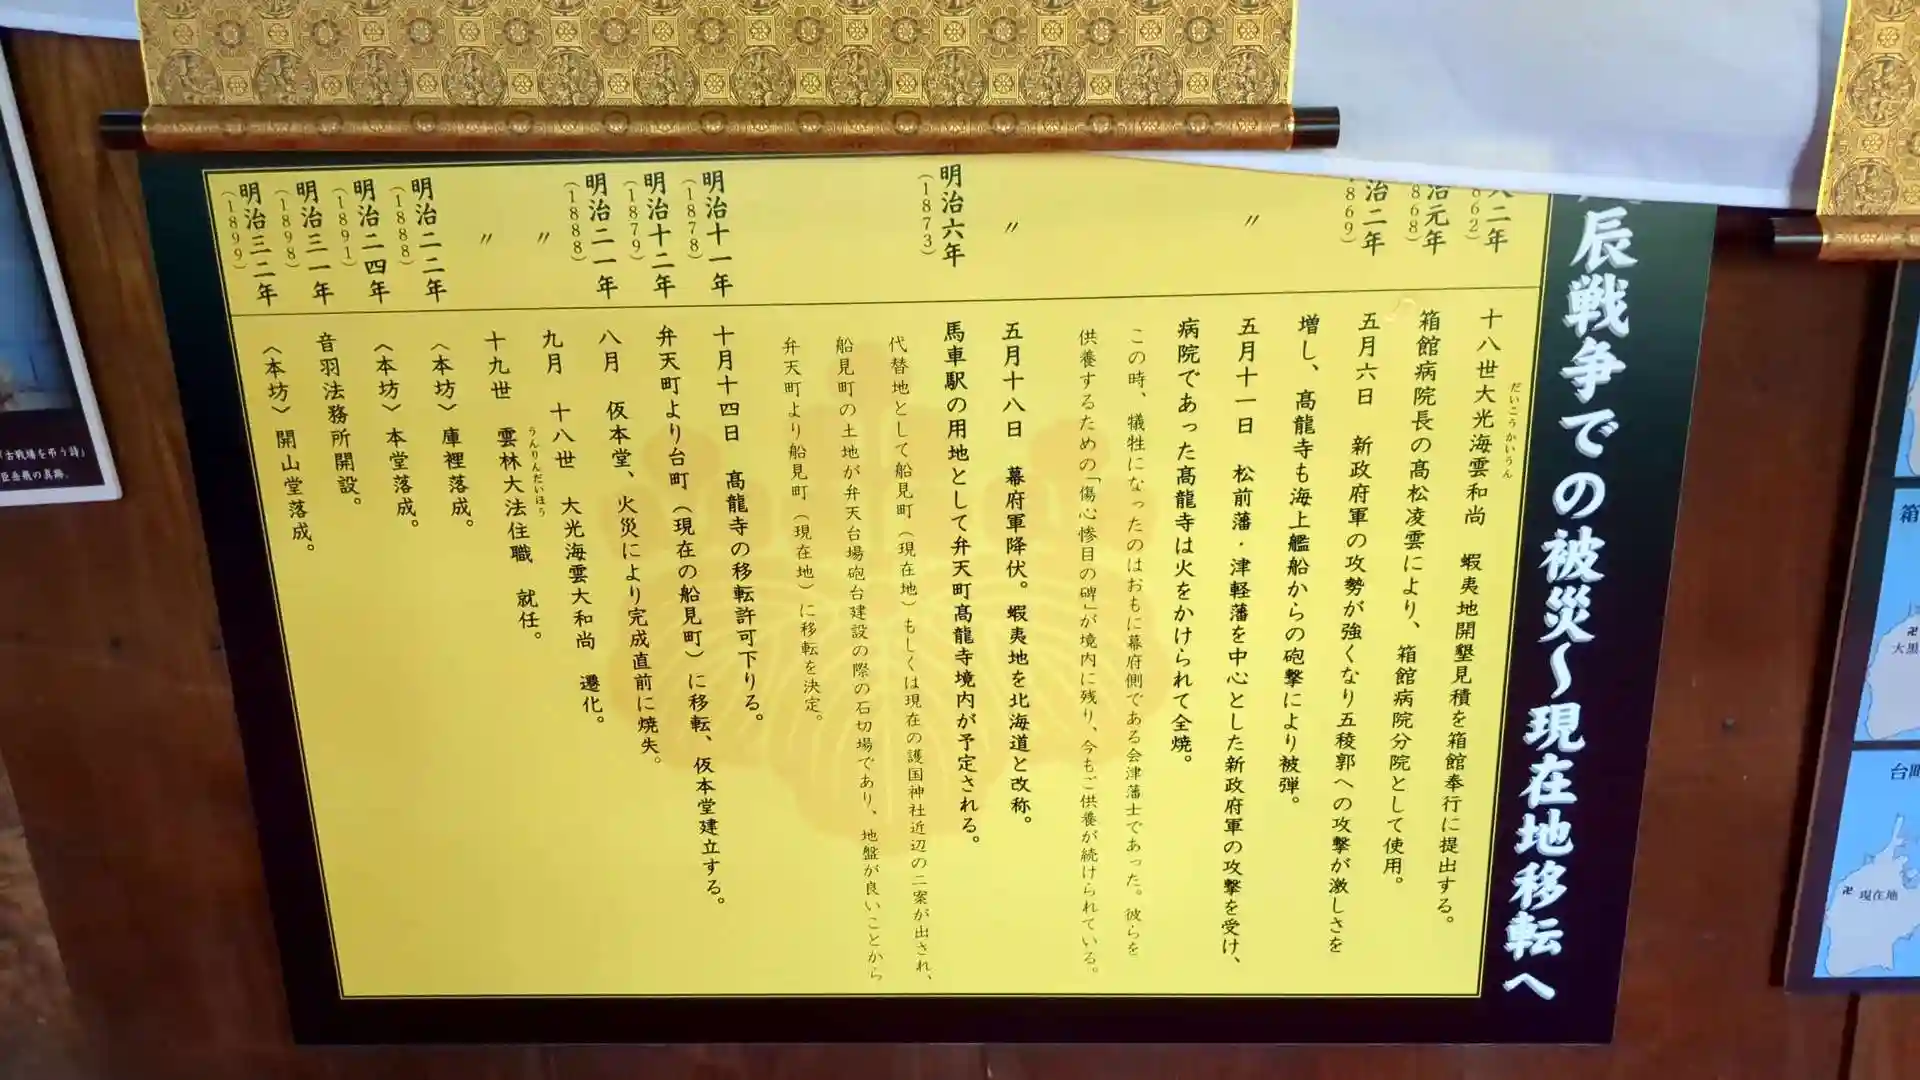 辰戦争での被災〜現在地移転へ
八二年
862)
十八世大光海雲和尚 蝦夷地開墾見積を箱館奉行に提出する。
だいこうかいうん
治元年
868)
箱館病院長の高松凌雲により、箱館病院分院として使用。
治二年
869)
五月六日 新政府軍の攻勢が強くなり五稜郭への攻撃が激しさを
増し、高龍寺も海上艦船からの砲撃により被弾。
〃
五月十一日 松前藩・津軽藩を中心とした新政府軍の攻撃を受け、
病院であった高龍寺は火をかけられて全焼。
この時、犠牲になったのはおもに幕府側である会津藩士であった。彼らを
供養するための「傷心惨目の碑」が境内に残り、今もご供養が続けられている。
〃
五月十八日 幕府軍降伏。蝦夷地を北海道と改称。
明治六年
(1873)
馬車駅の用地として弁天町高龍寺境内が予定される。
代替地として船見町(現在地)もしくは現在の護国神社近辺の二案が出され、
船見町の土地が弁天台場砲台建設の際の石切場であり、地盤が良いことから
弁天町より船見町(現在地)に移転を決定。
明治十一年
(1878)
十月十四日 高龍寺の移転許可下りる。
明治十二年
(1879)
弁天町より台町(現在の船見町)に移転、仮本堂建立する。
明治二一年
(1888)
八月 仮本堂、火災により完成直前に焼失。
〃
九月 十八世 大光海雲大和尚 遷化。
〃
十九世 雲林大法住職 就任。
うんりんだいほう
明治二二年
(1888)
〈本坊〉庫裡落成。
明治二四年
(1891)
〈本坊〉本堂落成。
明治三一年
(1898)
音羽法務所開設。
明治三二年
(1899)
〈本坊〉開山堂落成。
「古戦場を弔う詩」
臣岳飛の真跡。
箱
卍
大黒
台町
卍 現在地